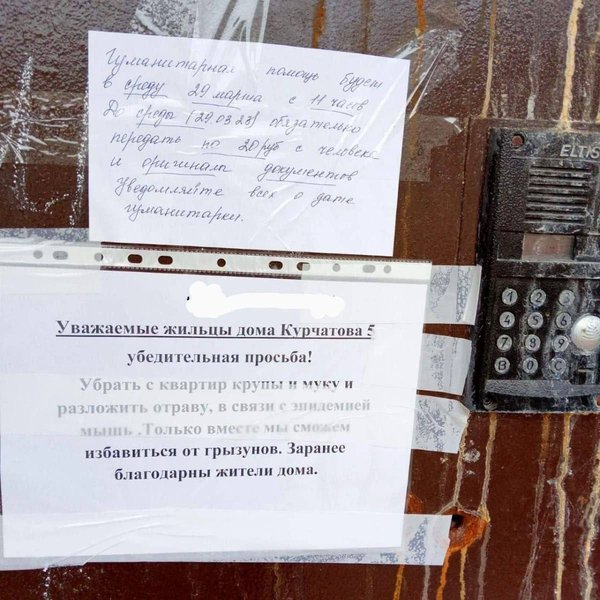 Гуманитарная помощь будет
в среду 29 марта с 11 часов
До среды (29.03.23) обязательно
передать по 20 руб с человека
и оригиналы документов
Уведомляйте всех о дате
гуманитарки.
ELTIS
1 2 3
4 5 6
7 8 9
B 0
Уважаемые жильцы дома Курчатова 5
убедительная просьба!
Убрать с квартир крупы и муку и
разложить отраву, в связи с эпидемией
мышь .Только вместе мы сможем
избавиться от грызунов. Заранее
благодарны жители дома.